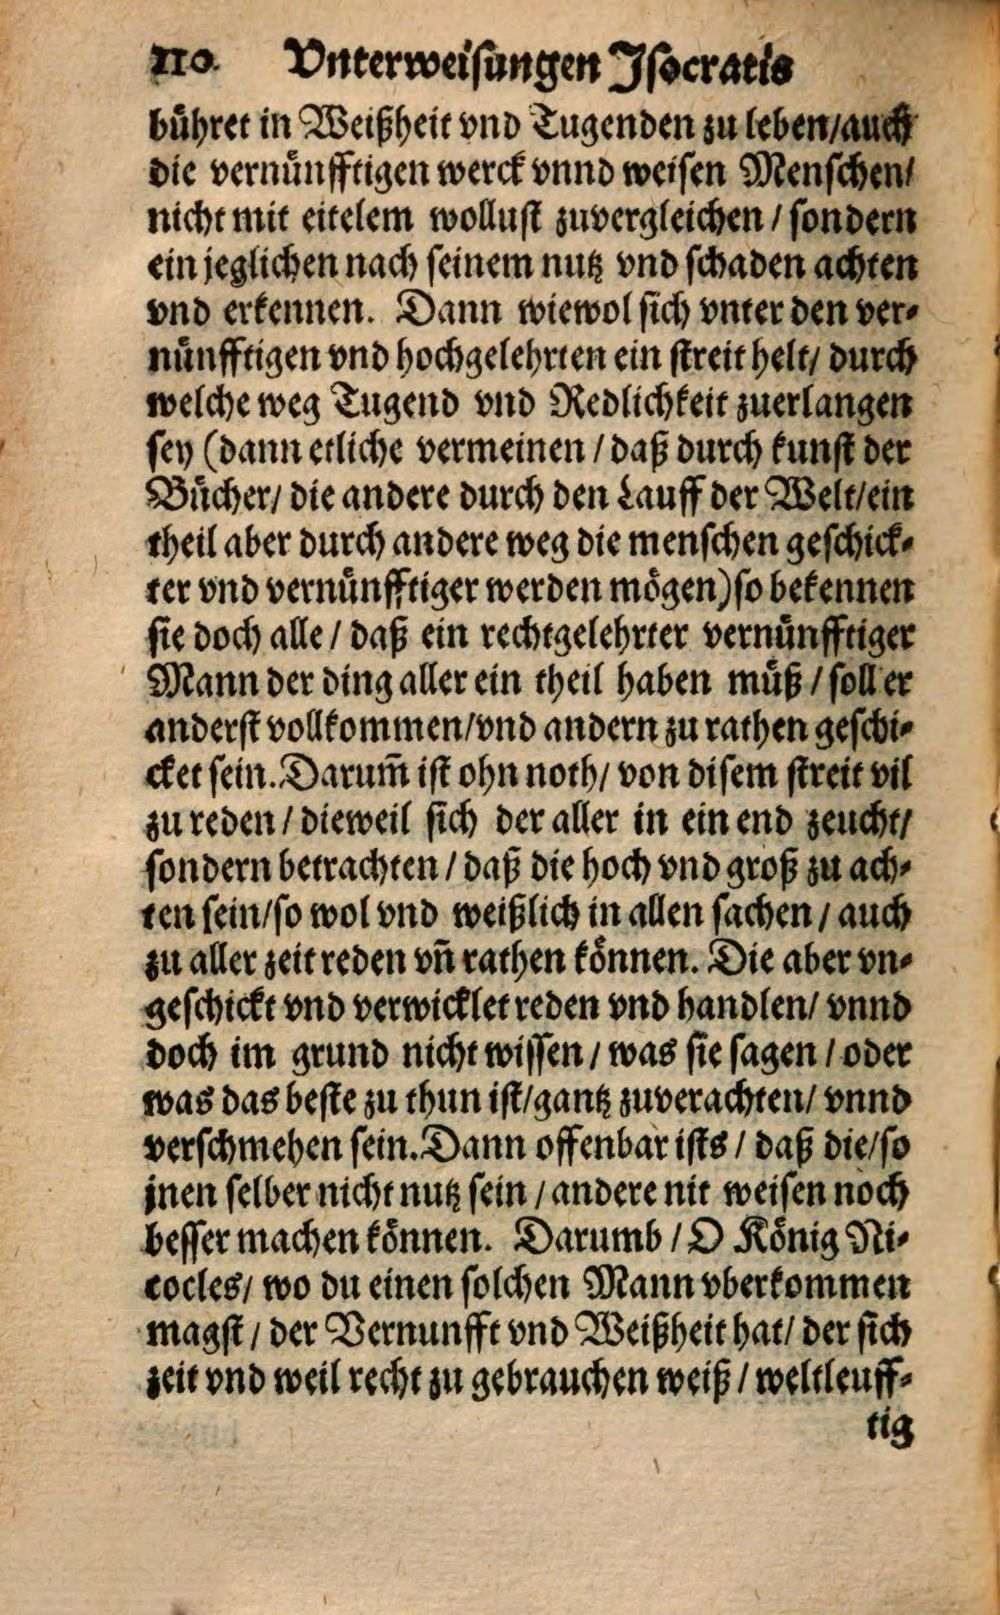 110. Vnterweisungen Isocratis
bühret in Weißheit vnd Tugenden zu leben/auch
die vernünfftigen werck vnnd weisen Menschen/
nicht mit eitelem wollust zuvergleichen / sondern
ein jeglichen nach seinem nutz vnd schaden achten
vnd erkennen. Dann wiewol sich vnter den ver-
nünfftigen vnd hochgelehrten ein streit helt/ durch
welche weg Tugend vnd Redlichkeit zuerlangen
sey (dann etliche vermeinen / daß durch kunst der
Bücher/ die andere durch den Lauff der Welt/ein
theil aber durch andere weg die menschen geschick-
ter vnd vernünfftiger werden mögen) so bekennen
sie doch alle / daß ein rechtgelehrter vernünfftiger
Mann der ding aller ein theil haben müß / soll er
anderst vollkommen/vnd andern zu rathen geschi-
cket sein. Darum̃ ist ohn noth/ von disem streit vil
zu reden / dieweil sich der aller in ein end zeucht/
sondern betrachten / daß die hoch vnd groß zu ach-
ten sein/so wol vnd weißlich in allen sachen / auch
zu aller zeit reden vñ rathen können. Die aber vn-
geschickt vnd verwicklet reden vnd handlen/ vnnd
doch im grund nicht wissen / was sie sagen / oder
was das beste zu thun ist/gantz zuverachten/ vnnd
verschmehen sein. Dann offenbar ists / daß die/so
jnen selber nicht nutz sein / andere nit weisen noch
besser machen können. Darumb / O König Ni-
cocles/ wo du einen solchen Mann vberkommen
magst / der Vernunfft vnd Weißheit hat/ der sich
zeit vnd weil recht zu gebrauchen weiß / weltleuff-
tig